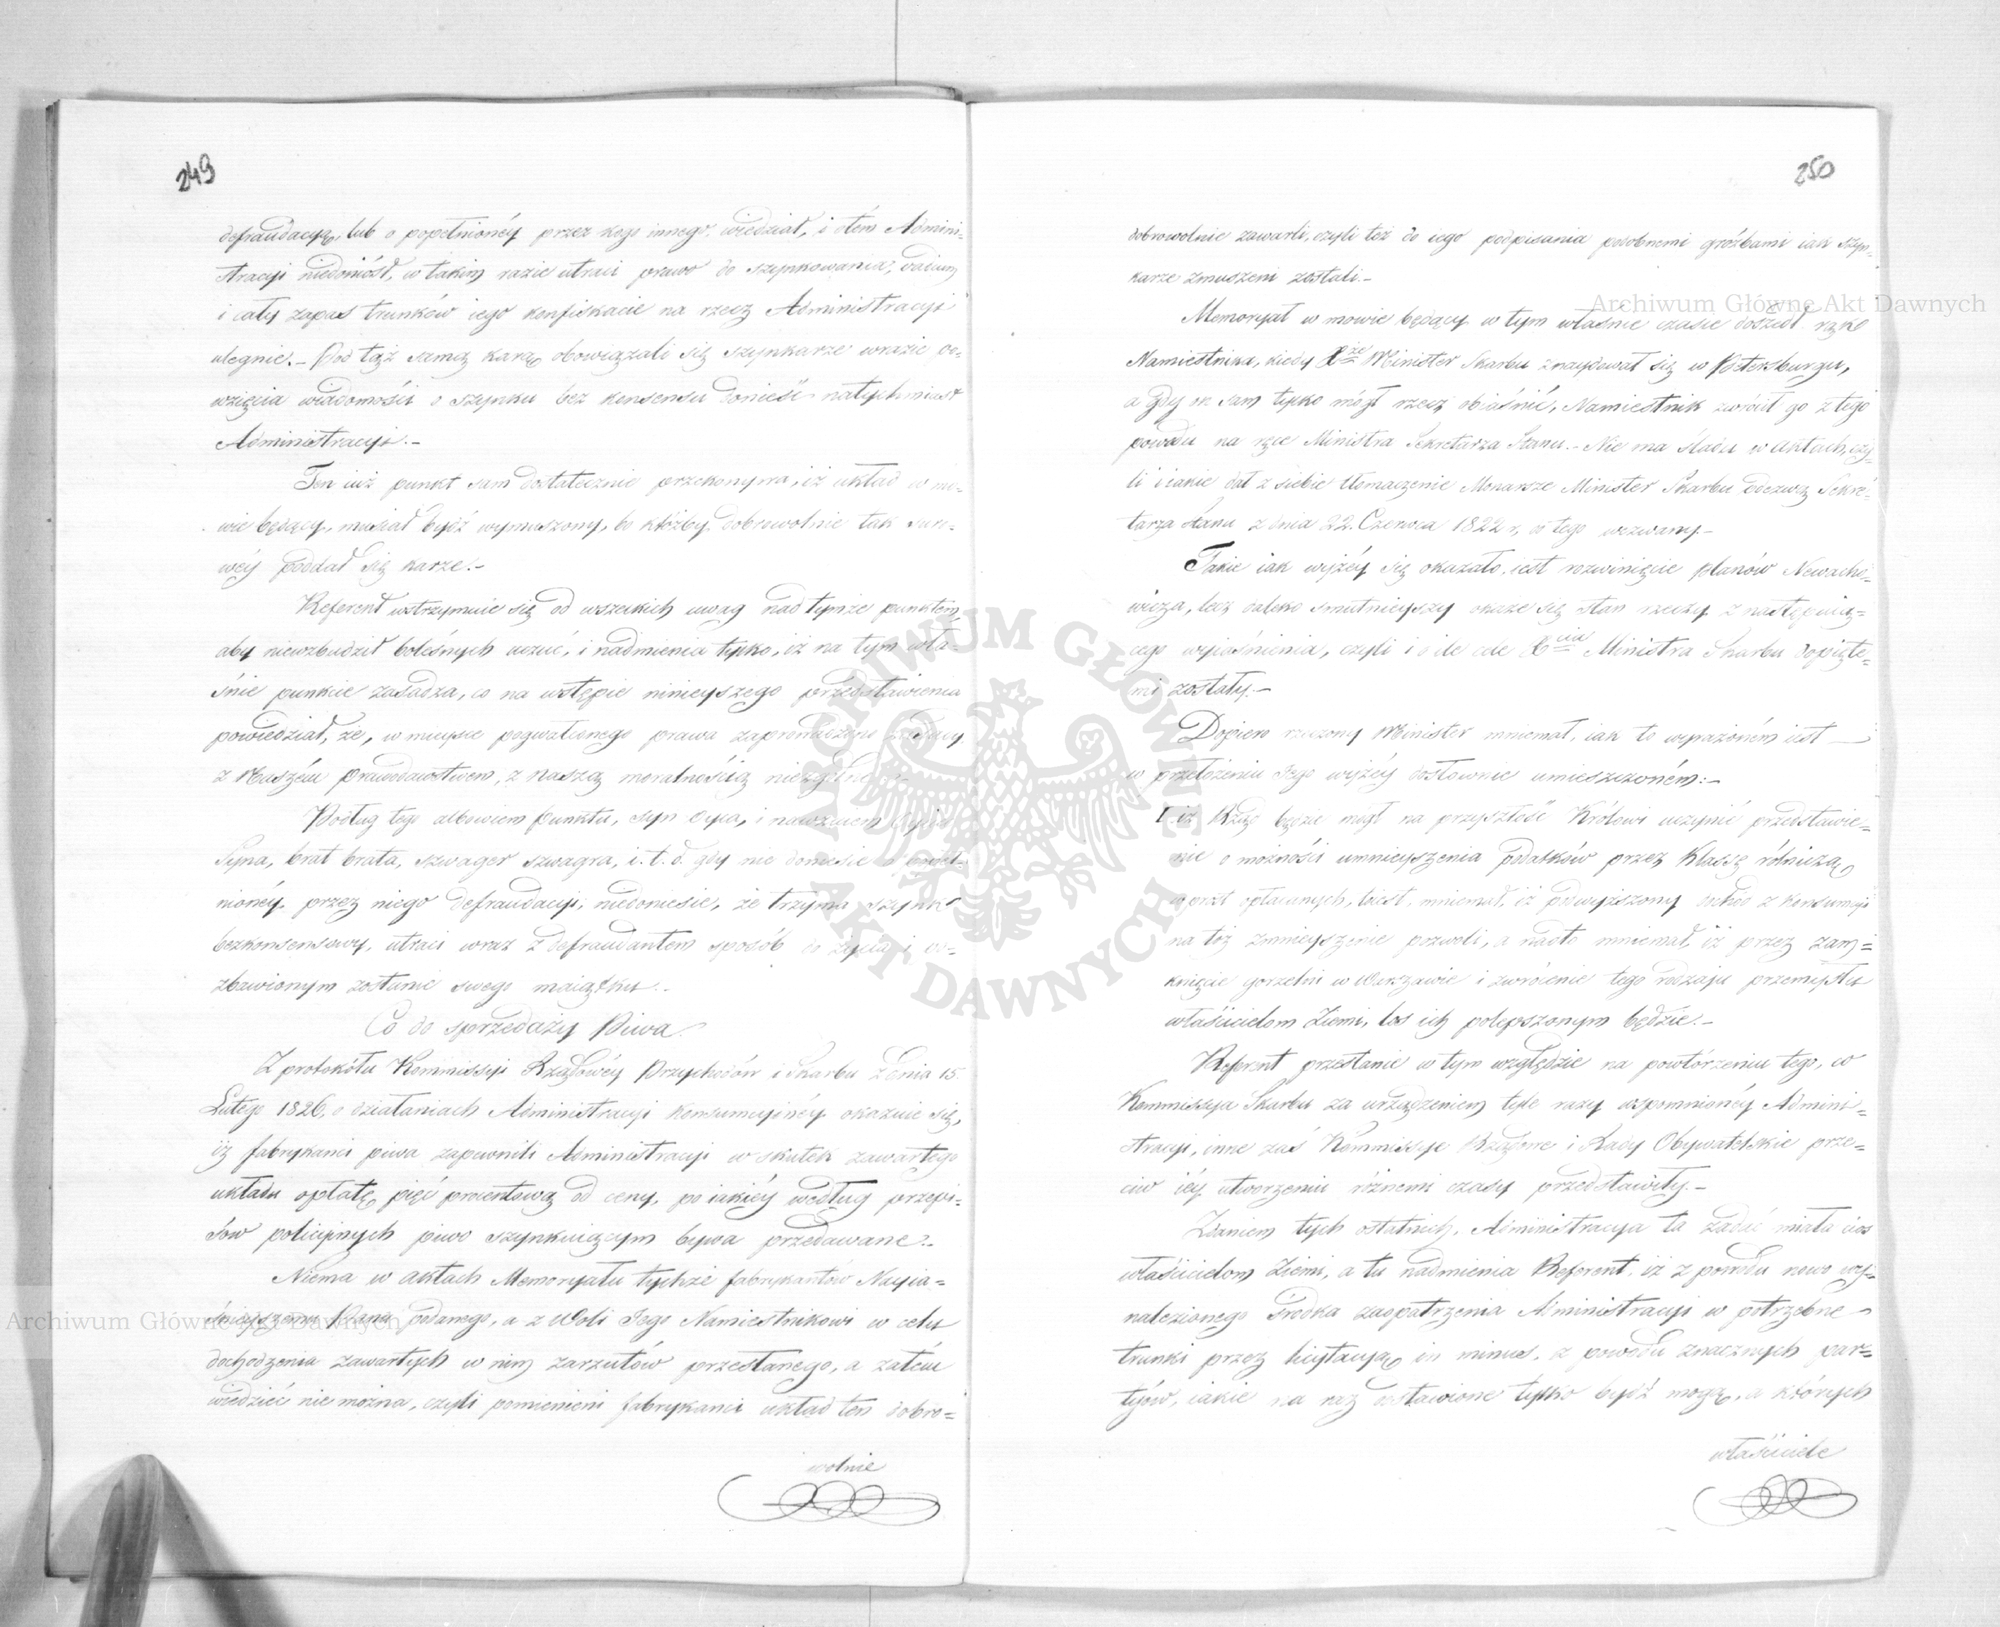 249
defraudacyą, lub o popełnionéy przez kogo innego, wiedział, i o tém Admini-
stracyi niedoniósł, w takim razie utraci prawo do szynkowania, vadium
i cały zapas trunków iego konfiskacie na rzecz Administracyi
ulegnie.- Pod tąż samą karą obowiązali się szynkarze w razie po-
wzięcia wiadomości o szynku bez konsensu donieść natychmiast
Administracyi.-
Ten iuż punkt sam dostatecznie przekonywa, iż układ w mo-
wie będący, musiał bydź wymuszony, bo któżby dobrowolnie tak suro-
wéy poddał się karze.-
Referent wstrzymuie się od wszelkich uwag nad tymże punktem,
aby niewzbudził boleśnych uczuć, i nadmienia tylko, iż na tym wła-
śnie punkcie zasadza, co na wstępie ninieyszego przedstawienia
powiedział, że, w mieysce pogwałconego prawa zaprowadzono
z Naszém prawodawstwem, z naszą moralnością niezgodne.-
Podług tego albowiem punktu, syn Oyca, i nawzaiem Oyciec
Syna, brat brata, szwager szwagra, i.t.d. gdy nie doniesie o popeł-
nionéy przez niego defraudacyi, niedoniesie, że trzyma szynk
bezkonsensowy, utraci wraz z defraudantem sposób do życia i po-
zbawionym zostanie swego maiątku.-
Co do sprzedaży Piwa.
Z protokółu Kommissyi Rządowéy Przychodów i Skarbu z dnia 15
Lutego 1826. o działaniach Administracyi konsumcyinéy okazuie się,
iż fabrykanci piwa zapewnili Administracyi w skutek zawartego
układu opłatę pięć procentową od ceny, po iakiéy według przepi-
sów policyinych piwo szynkuiącym bywa przedawane.-
Niema w aktach Memoryału tychże fabrykantów Nayia-
śnieyszemu Panu podanego, a z Woli Jego Namiestnikowi w celu
dochodzenia zawartych w nim zarzutów przesłanego, a zatém
wiedzieć nie można, czyli pomienieni fabrykanci układ ten dobro=
wolnie
250
dobrowolnie zawarli, czyli też do iego podpisania podobnemi groźbami iak szyn-
karze zmuszeni zostali.-
Memoryał w mowie będący w tym właśnie czasie doszedł rąk
Namiestnika, kiedy Xże Minister Skarbu znaydował się w Petersburgu,
a gdy on sam tylko mógł rzecz obiaśnić, Namiestnik zwrócił go z tego
powodu na ręce Ministra Sekretarza Stanu.- Nie ma śladu w aktach, czy-
li i iakie dał z siebie tłomaczenie Monarsze Minister Skarbu odezwą Sekre-
tarza Stanu z dnia 22. Czerwca 1822 r, do tego wezwany.-
Takie iak wyżéy się okazało, iest rozwinięcie planów Newacho-
wicza, lecz daleko smutnieyszy okaże się stan rzeczy z następuią=
cego wyiaśnienia, czyli i o ile cele Xcia Ministra Skarbu dopięte-
mi zostały.-
Dopiero rzeczony Minister mniemał, iak to wyrażoném iest
w przełożeniu Jego wyżéy dosłownie umieszczoném:-
I. iż Rząd będzie mógł na przyszłość Królowi uczynić przedstawie-
nie o możności umnieyszenia podatków przez klassę rólniczą
wprost opłacanych, mniemał, iż podwyższony dochód z konsumcyi
na toż zmnieyszenie pozwoli, a nadto mniemał, iż przez zam=
knięcie gorzelni w Warszawie i zwrócenie tego rodzaju przemysłu
właścicielom Ziemi, los ich polepszonym będzie.-
Referent przestanie w tym względzie na powtórzeniu tego, co
Kommissya Skarbu za urządzeniem tyle razy wspomnionéy Admini=
stracyi, inne zaś Kommissye Rządowe i Rady Obywatelskie prze-
ciw iéy utworzeniu różnemi czasy przedstawiły.-
Zdaniem tych ostatnich, Administracya ta zadać miała cios
właścicielom Ziemi, a tu nadmienia Referent, iż z powodu nowo wy-
nalezionego środka zaopatrzenia Administracyi w potrzebne
trunki przez licytacyą in minus, z powodu znacznych par=
tyów, iakie na raz wstawione tylko bydź mogą, a których
właściciele
Archiwum Główne Akt Dawnych
Archiwum Główne Akt Dawnych
ARCHIWUM GŁÓWNE AKT DAWNYCH